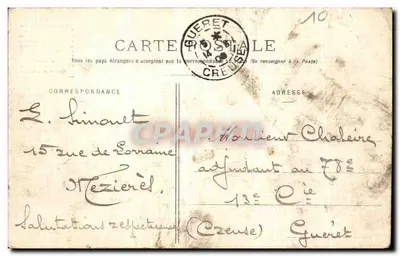 GUERET
CREUSE
10
CARTE POSTALE
Tous les pays étrangers n'acceptent pas la correspondance (Se renseigner à la Poste)
CORRESPONDANCE
ADRESSE
E. Simonet
15 rue de Lorraine
Mézières
Salutations respectueuses
Monsieur Chaleire
adjudant au 78e
13e Cie
(Creuse) Guéret